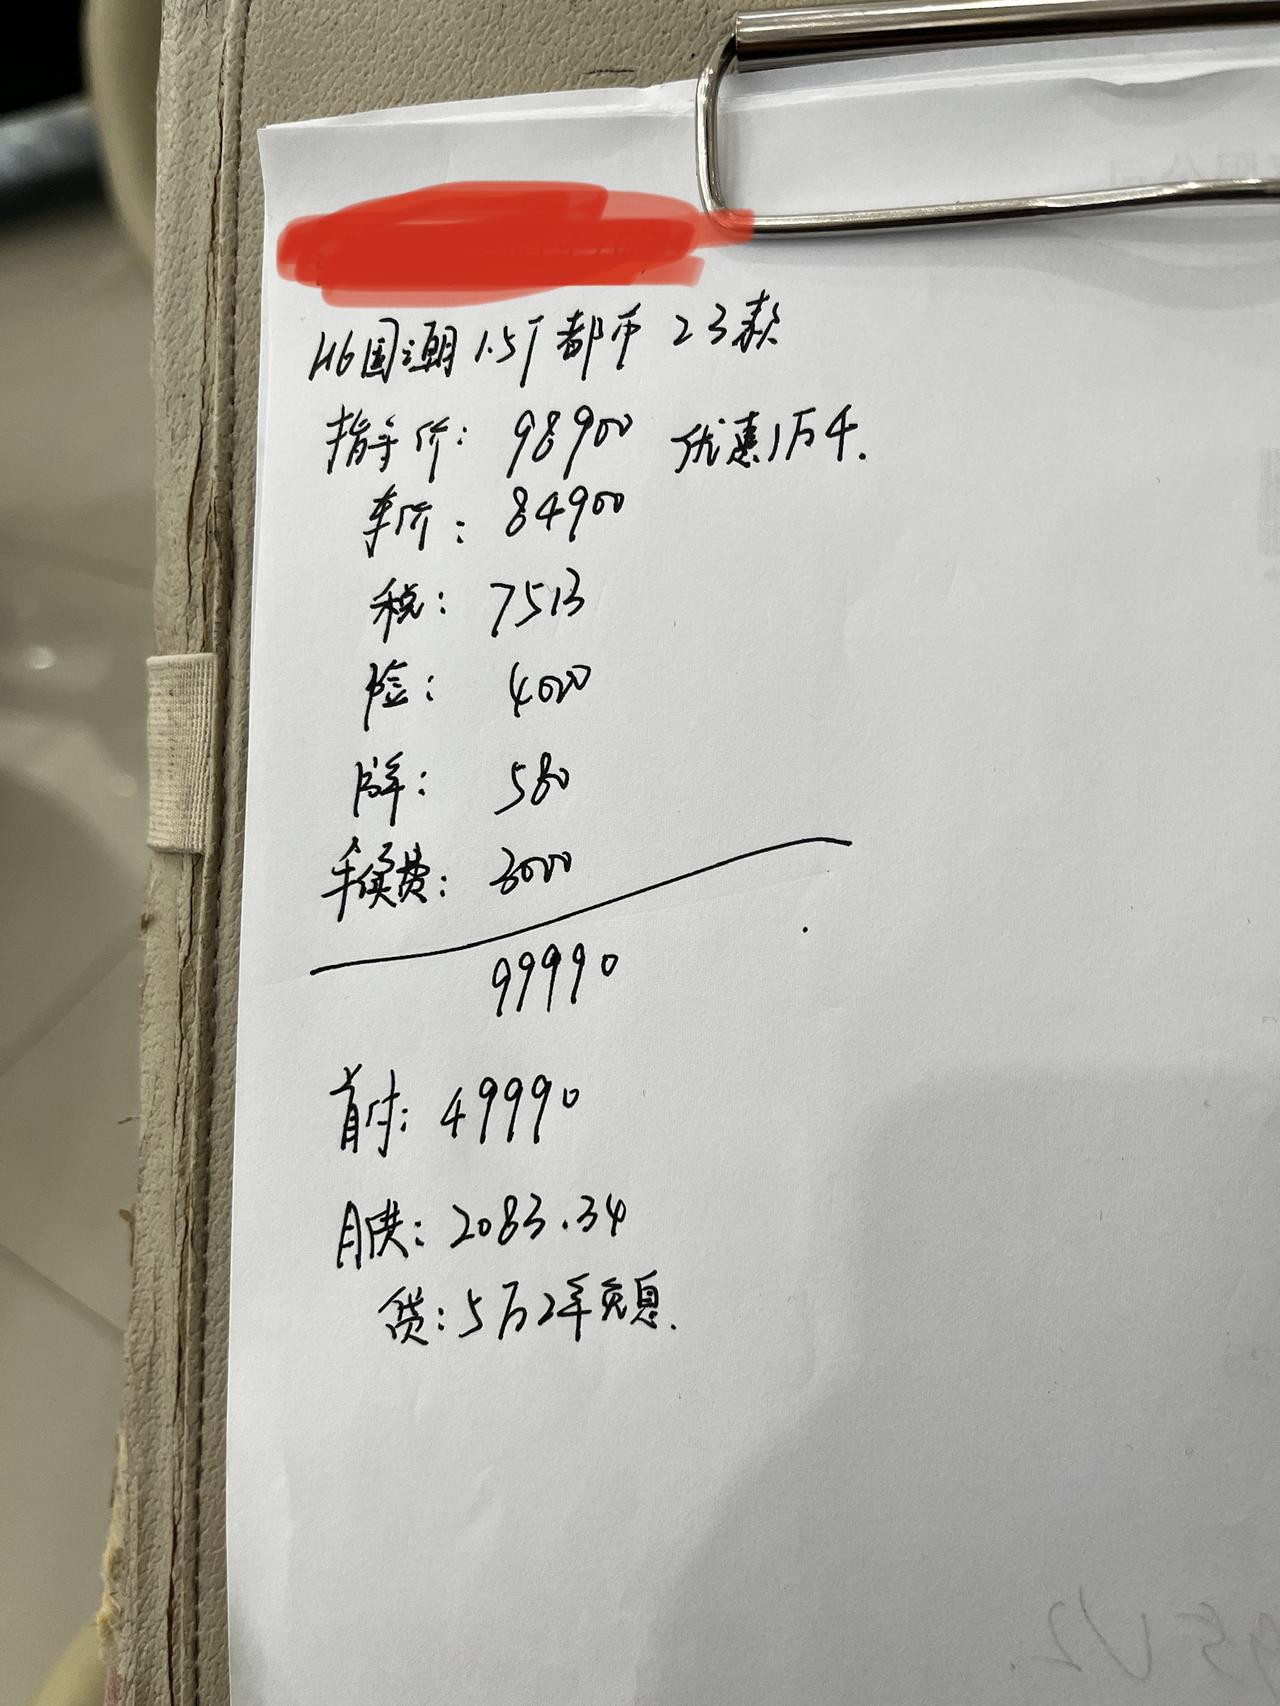 H6国潮 1.5T 都市 23款
指导价: 98900 优惠1万4.
车价: 84900
税: 7513
险: 4000
牌: 580
手续费: 3000
99990
首付: 49990
月供: 2083.34
贷: 5万2年免息.